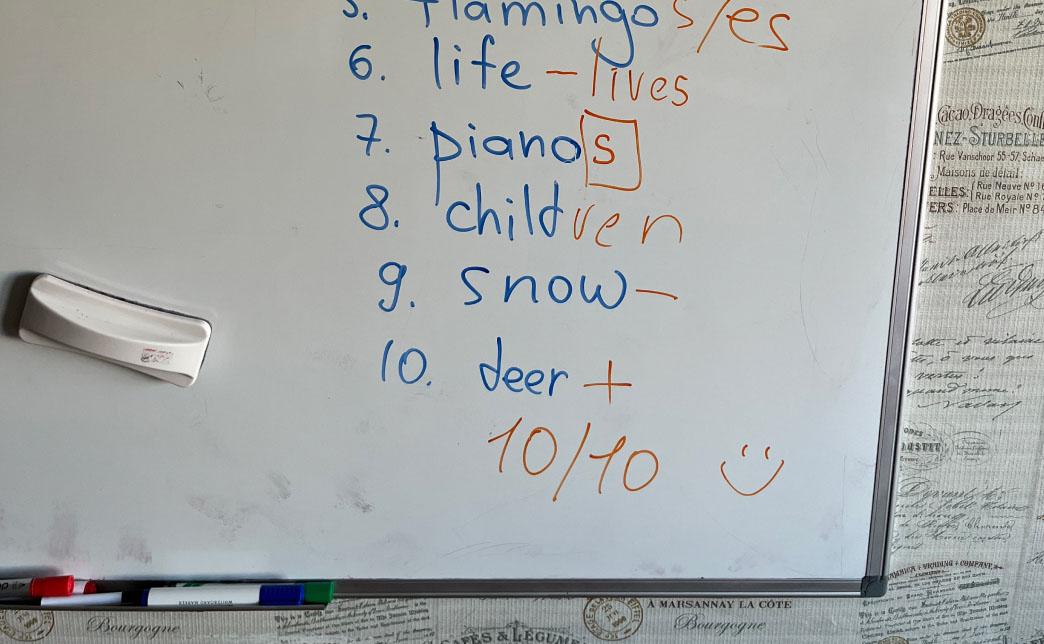 5. flamingos/es
6. life – lives
7. pianos
8. children
9. snow –
10. deer +
10/10
Cacao, Dragées
NEZ-STURBELLE
Rue Vanschoor 55-57, Schae
Maisons de détail:
ELLES: Rue Neuve Nº
Rue Royale Nº
ERS: Place de Meir Nº 84
Bourgogne
À MARSANNAY LA CÔTE
& LÉGUM
Bourgogne